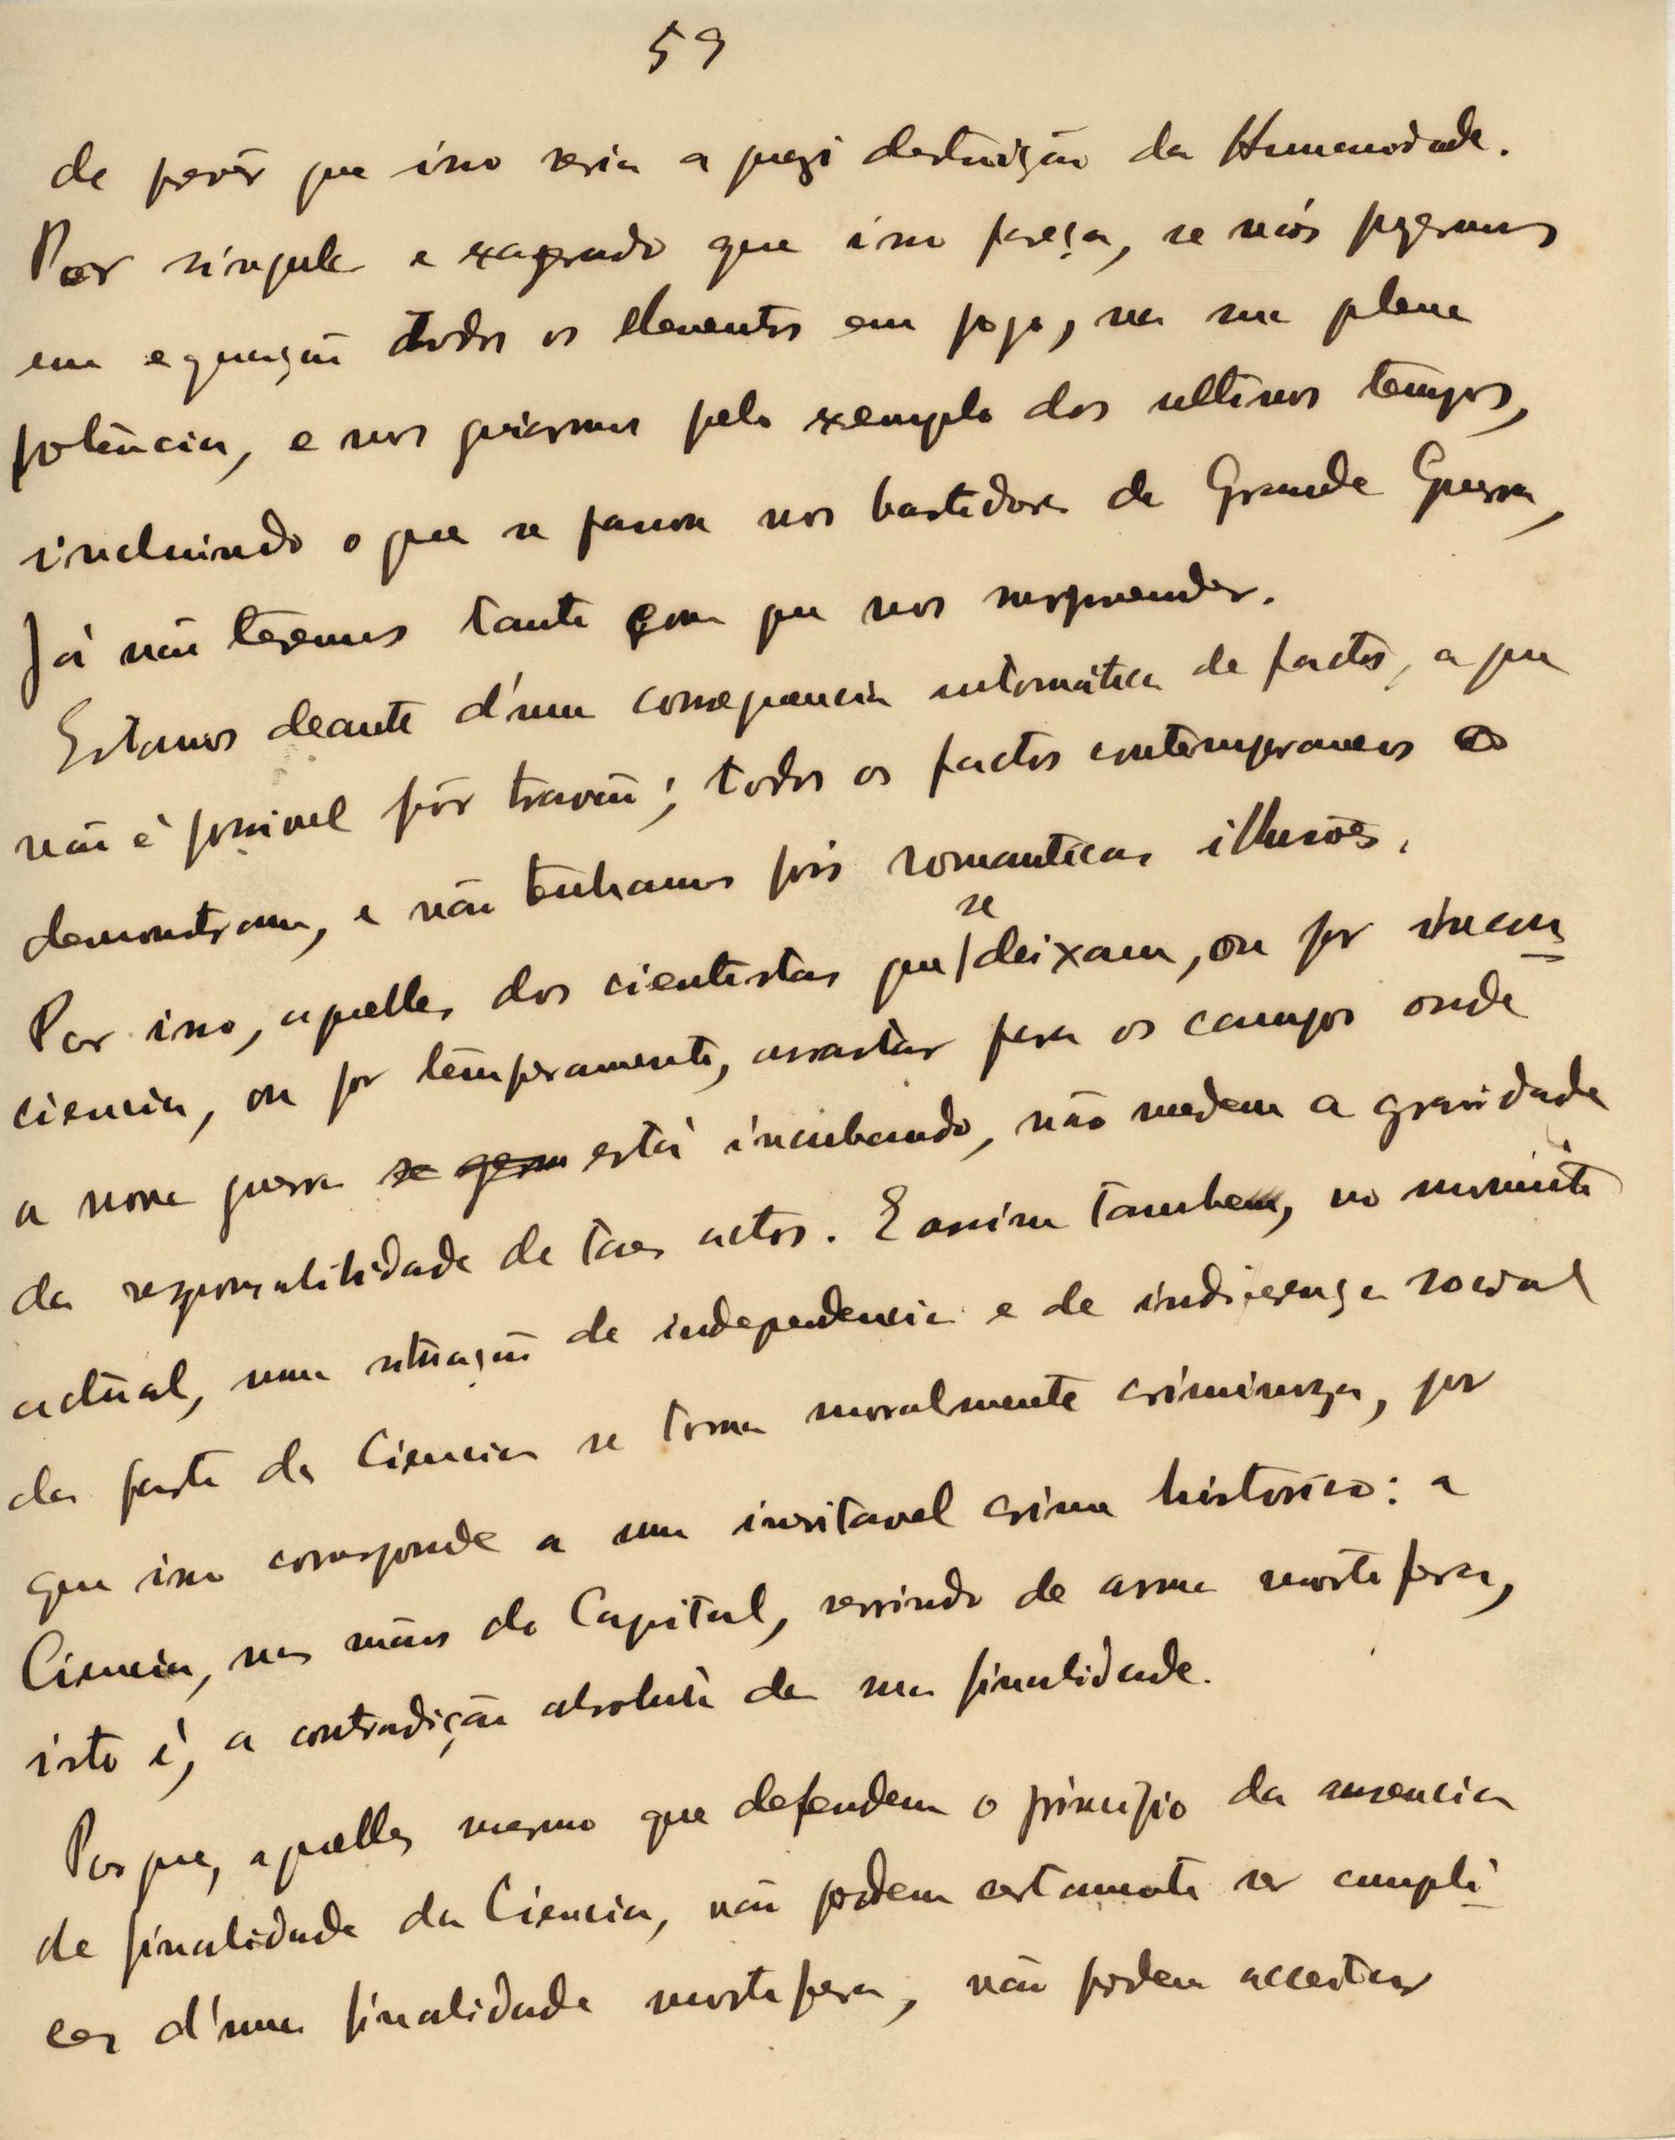 59
de prever que isso seria a quasi destruição da Humanidade.
Por singular e exagerado que isso pareça, se nós pozermos
em equação todos os elementos em jogo, na sua plena
potência, e nos guiarmos pelo exemplo dos ultimos tempos,
incluindo o que se passou nos bastidores da Grande Guerra,
Já não teremos tanto com que nos surprender.
Estamos deante d'uma consequencia automática de factos, a que
não é possivel pôr travão; todos os factos contemporaneos o
demonstram, e não tenhamos pois romanticas illusões.
Por isso, aquelles dos cientistas que se deixam, ou por incons
ciencia, ou por temperamento, arrastar para os campos onde
a nova guerra se gera está incubando, não medem a gravidade
da responsabilidade de taes actos. E assim tambem, no momento
actual, uma situação de independencia e de indiferença social
da parte da Ciencia se torna moralmente criminoza, por
que isso corresponde a um inevitavel crime historico: a
Ciencia, nas mãos do Capital, servindo de arma mortifera,
isto é, a contradição absoluta da sua finalidade.
Porque, aquelles mesmo que defendem o principio da ausencia
de finalidade da Ciencia, não podem certamente ser cumpli
ces d'uma finalidade mortifera, não podem acceitar